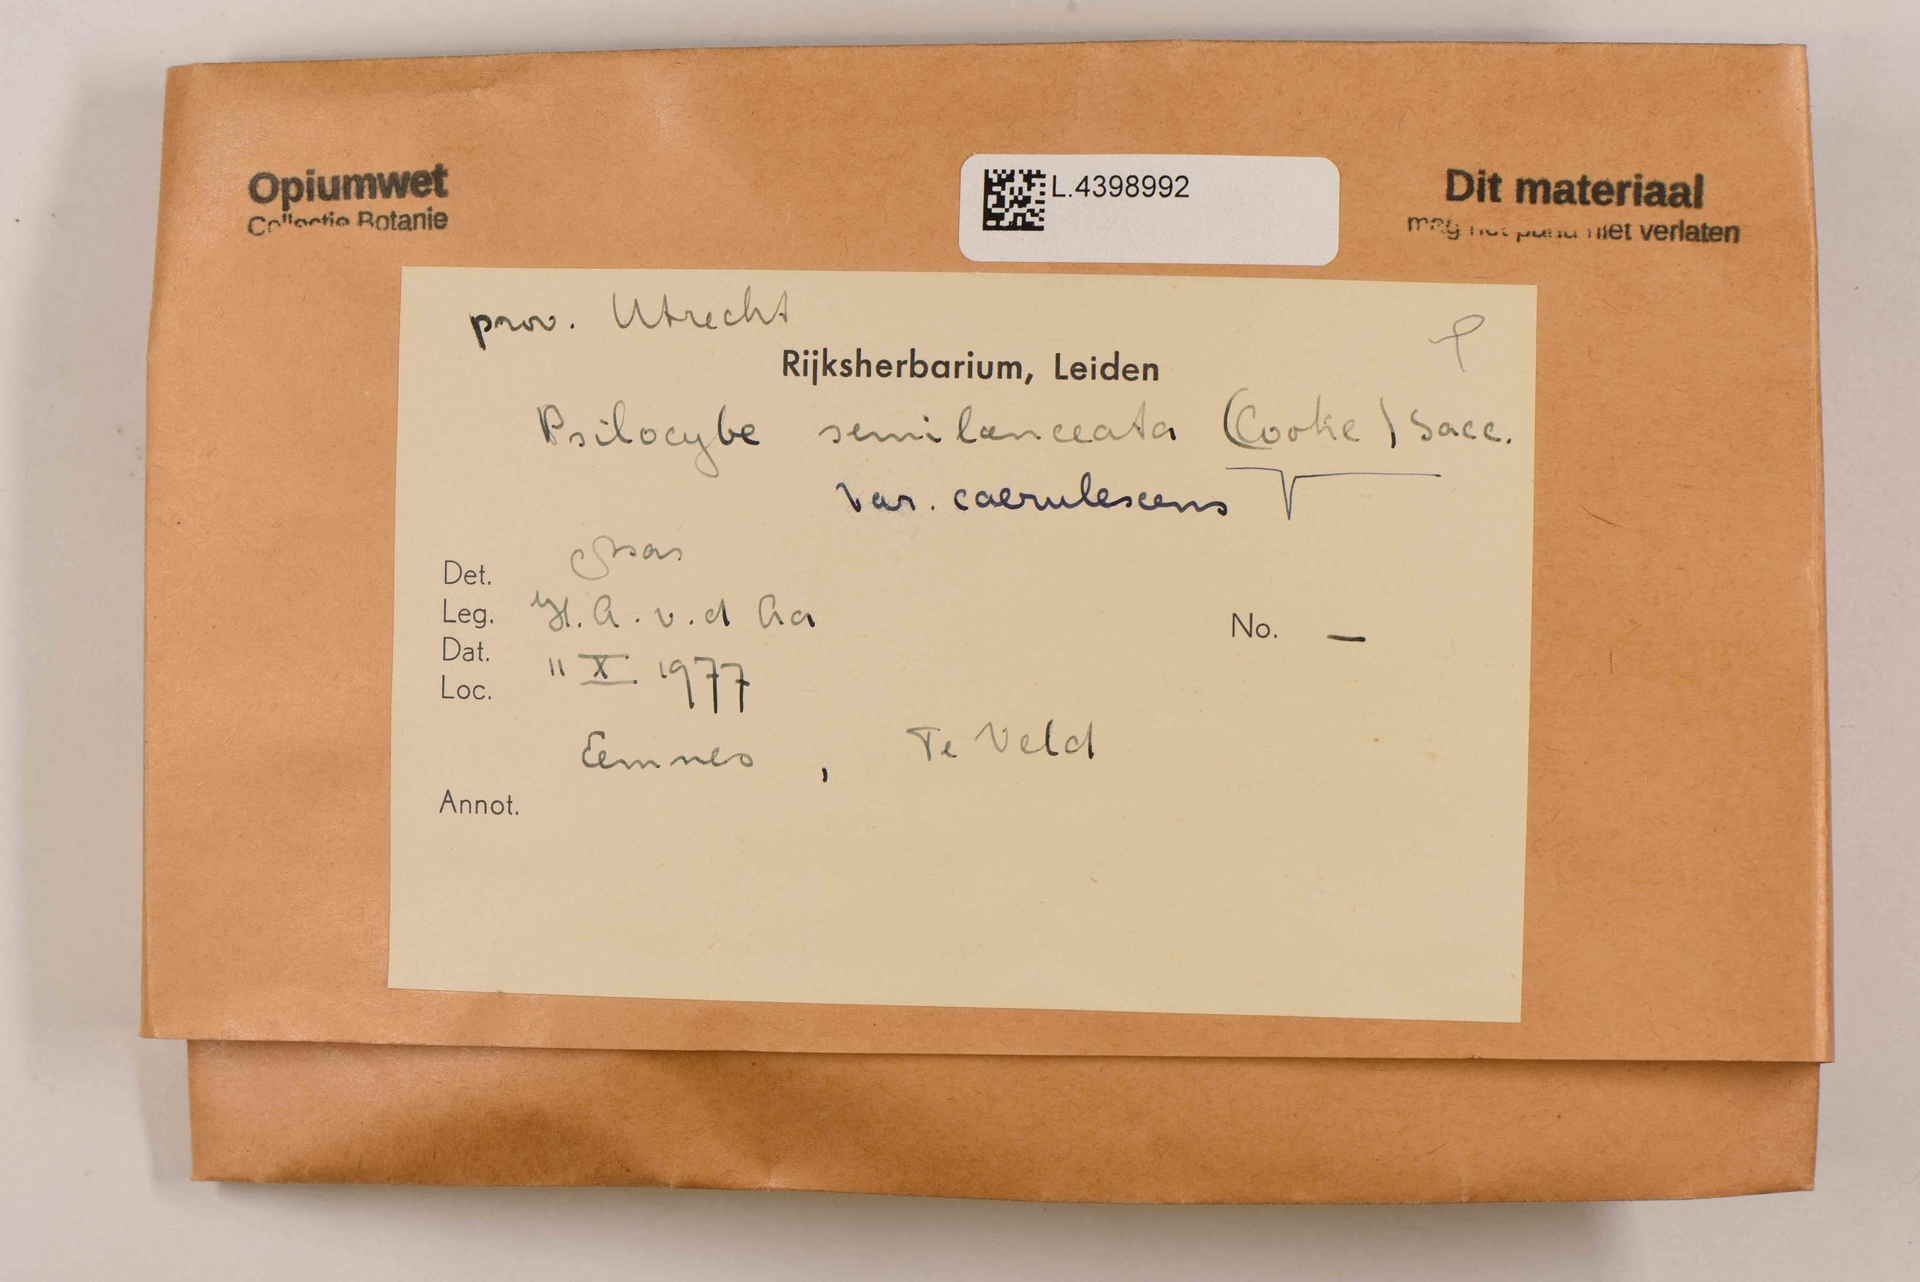 Opiumwet
Collectie Botanie
L.4398992
Dit materiaal
mag het pand niet verlaten
prov. Utrecht
Rijksherbarium, Leiden
Psilocybe semilanceata (Cooke) Sacc.
var. caerulescens
Det.
Leg. H.A. v.d Aa
No. —
Dat. 11 X 1977
Loc.
Eemnes, Te Veld
Annot.